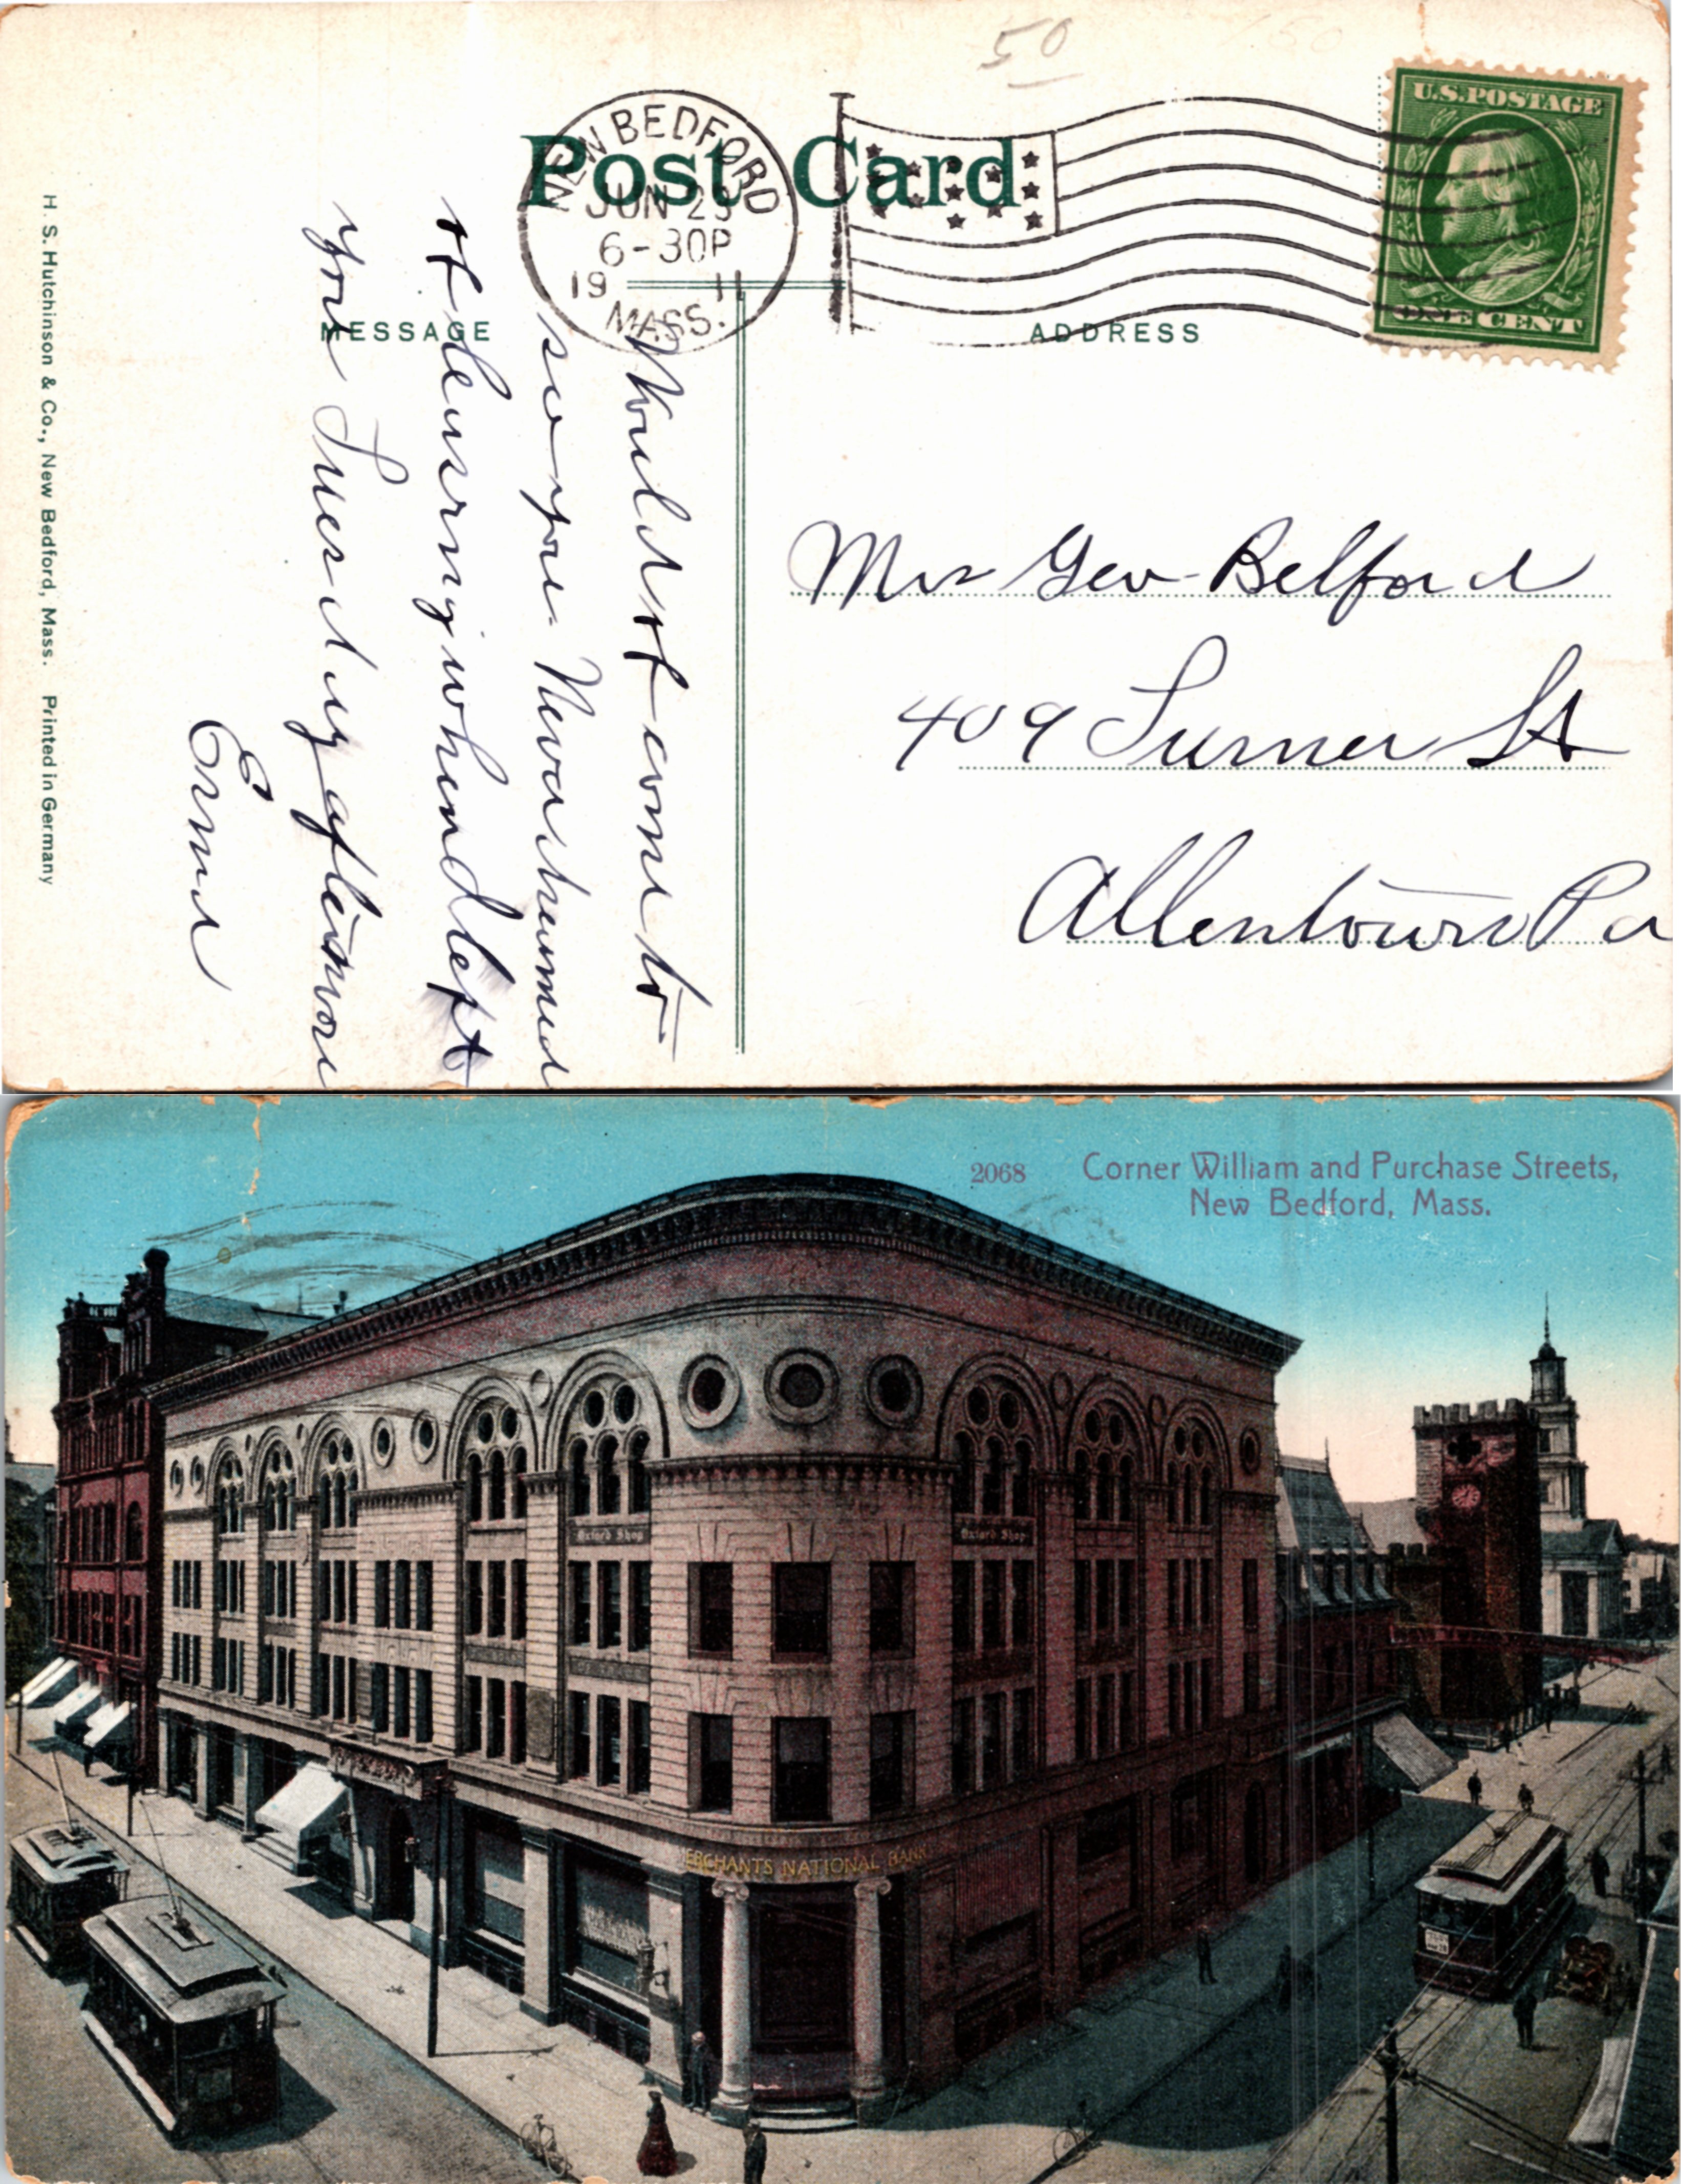 50
Post Card
NEW BEDFORD
JUN 23
6-30P
1911
MASS.
U.S. POSTAGE
ONE CENT
MESSAGE
ADDRESS
Would not come to
see you. Never dreamed
of leaving when I left
you Tuesday afternoon
Erma
Mrs Geo Belford
409 Turner St
Allentown Pa
H. S. Hutchinson & Co., New Bedford, Mass. Printed in Germany
2068 Corner William and Purchase Streets,
New Bedford, Mass.
Oxford Shop
Oxford Shop
ERCHANTS NATIONAL BANK